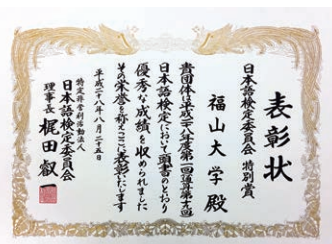 表彰状
日本語検定委員会 特別賞
福山大学 殿
貴団体は平成二十八年度第一回(通算第十九回)
日本語検定において頭書のとおり
優秀な成績を収められました
その栄誉を称えここに表彰いたします
平成二十八年八月二十五日
特定非営利活動法人
日本語検定委員会
理事長 梶田叡一